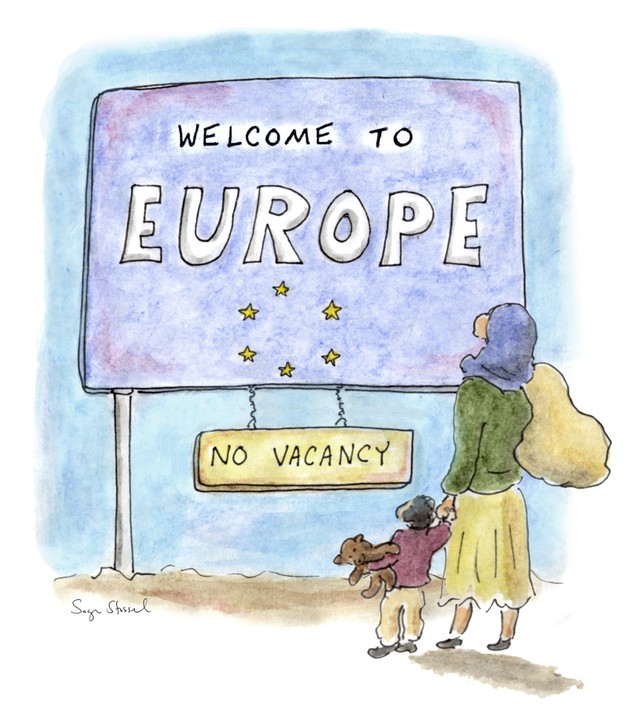 WELCOME TO
EUROPE
NO VACANCY
Sage Stossel